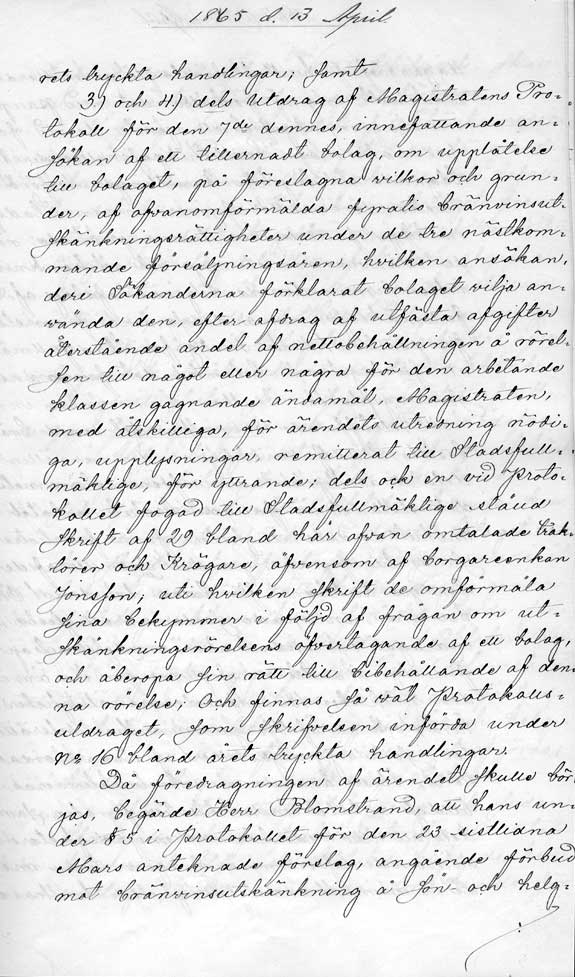 1865 d. 13 April.
rets tryckta handlingar; samt
3) och 4) dels utdrag af Magistratens Pro-
tokoll för den 7de dennes, innefattande an-
sökan af ett tillernadt bolag, om upplåtelse
till bolaget, på föreslagna vilkor och grun-
der, af ofvanomförmälda fyratio bränvinsut-
skänkningsrättigheter under de tre nästkom-
mande försäljningsåren, hvilken ansökan,
deri Sökanderna förklarat bolaget vilja an-
vända den, efter afdrag af utfästa afgifter
återstående andel af nettobehållningen å rörel-
sen till något eller några för den arbetande
klassen gagnande ändamål, Magistraten,
med åtskilliga, för ärendets utredning nödi-
ga, upplysningar, remitterat till Stadsfull-
mäktige, för yttrande; dels ock en vid Proto-
kollet fogad till Stadsfullmäktige ställd
skrift af 29 bland här ofvan omtalade Trak-
törer och Krögare, äfvensom af borgareenkan
Jonsson; uti hvilken skrift de omförmäla
sina bekymmer i följd af frågan om ut-
skänkningsrörelsens öfvertagande af ett bolag,
och åberopa sin rätt till bibehållande af den-
na rörelse; Och finnas så väl Protokolls-
utdraget, som skrifvelsen införda under
No 16 bland årets tryckta handlingar.
Då föredragningen af ärendet skulle bör-
jas, begärde Herr Blomstrand, att hans un-
der § 5 i Protokollet för den 23 sistlidna
Mars antecknade förslag, angående förbud
mot bränvinsutskänkning å sön- och helg-